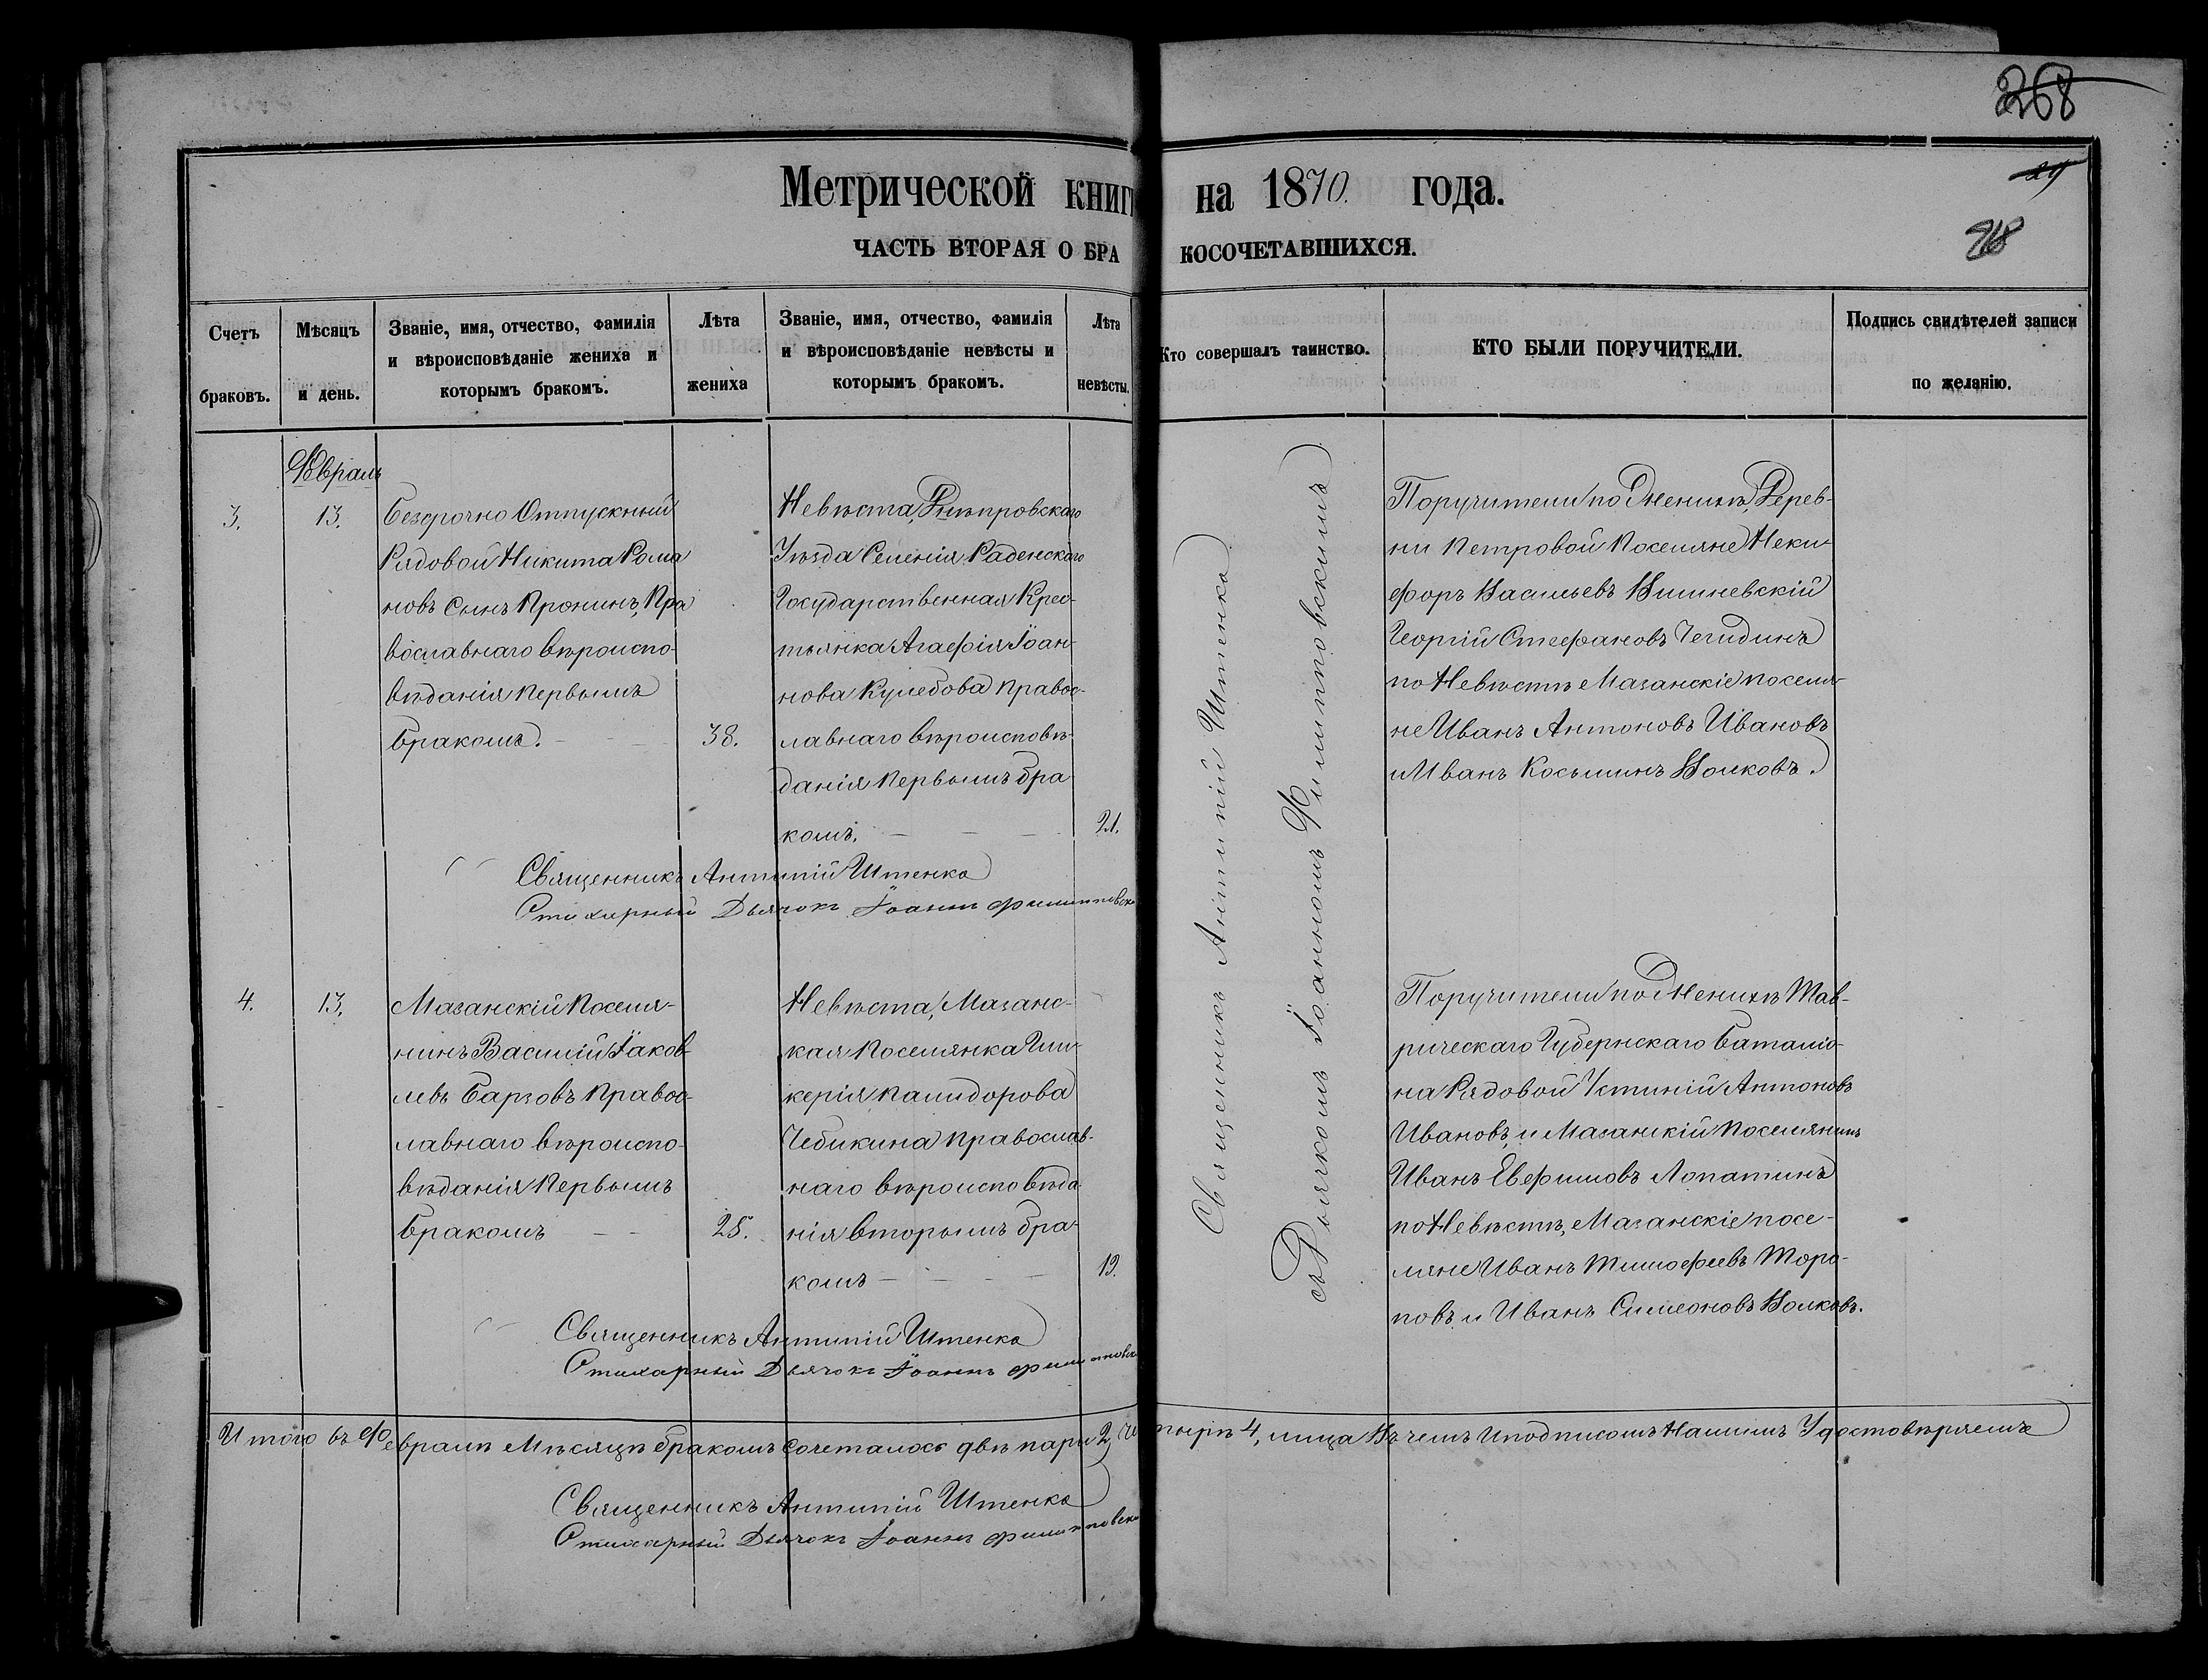 268
29
98
Метрической книги на 1870. года.
ЧАСТЬ ВТОРАЯ О БРАКОСОЧЕТАВШИХСЯ.
Счетъ браковъ.
Мѣсяцъ и день.
Званіе, имя, отчество, фамилія
и вѣроисповѣданіе жениха и
которымъ бракомъ.
Лѣта жениха
Званіе, имя, отчество, фамилія
и вѣроисповѣданіе невѣсты и
которымъ бракомъ.
Лѣта невѣсты.
Кто совершалъ таинство.
КТО БЫЛИ ПОРУЧИТЕЛИ.
Подпись свидѣтелей записи
по желанію.
Февраль
3.
13.
Безсрочно Отпускный
Рядовой Никита Рома
новъ Сынъ Пронинъ, Пра
вославнаго вѣроиспо-
вѣданія первымъ
бракомъ.
38.
Невѣста, Днѣпровскаго
Уѣзда Селенія Раденскаго
Государственная Крес-
тьянка Агафія Іоан-
нова Кулебова Правос-
лавнаго вѣроисповѣ-
данія первымъ бра
комъ.
21.
Священникъ Антипій Штенко
Стихарный Дьячокъ Іоаннъ Филипповскі
Священникъ Антипій Штенко
съ Дьячкомъ Іоанномъ Филипповскимъ
Поручители по Женихѣ, Дерев-
ни Петровой Поселяне Ники-
форъ Васильевъ Вишневскій
Георгій Стефановъ Чегидинъ
по Невѣстѣ Мазанскіе поселя-
не Иванъ Антоновъ Ивановъ
и Иванъ Косьминъ Волковъ.
4.
13.
Мазанскій Поселя-
нинъ Василій Іаков-
левъ Барзовъ Правос-
лавнаго вѣроиспо-
вѣданія Первымъ
бракомъ
25.
Невѣста, Мазанс-
кая Поселянка Гли-
керія Палидорова
Чебикина Православ-
наго вѣроисповѣда-
нія вторымъ бра-
комъ
19.
Священникъ Антипій Штенко
Стихарный Дьячокъ Іоаннъ Филипповскі
Поручители по Женихѣ Тав-
рическаго Губернскаго Баталіо-
на Рядовой Устиній Антоновъ
Ивановъ, и Мазанскій Поселянинъ
Иванъ Евфимовъ Лопатинъ
по Невѣстѣ, Мазанскіе посе-
ляне Иванъ Тимофеевъ Торо-
повъ и Иванъ Симеоновъ Волковъ.
Итого въ Февралѣ Мѣсяцѣ бракомъ Сочеталось двѣ пары 2, Четырѣ 4, лица Въ чемъ и подписомъ Нашимъ Удостовѣряемъ
Священникъ Антипій Штенко
Стихарный Дьячокъ Іоаннъ Филипповскі